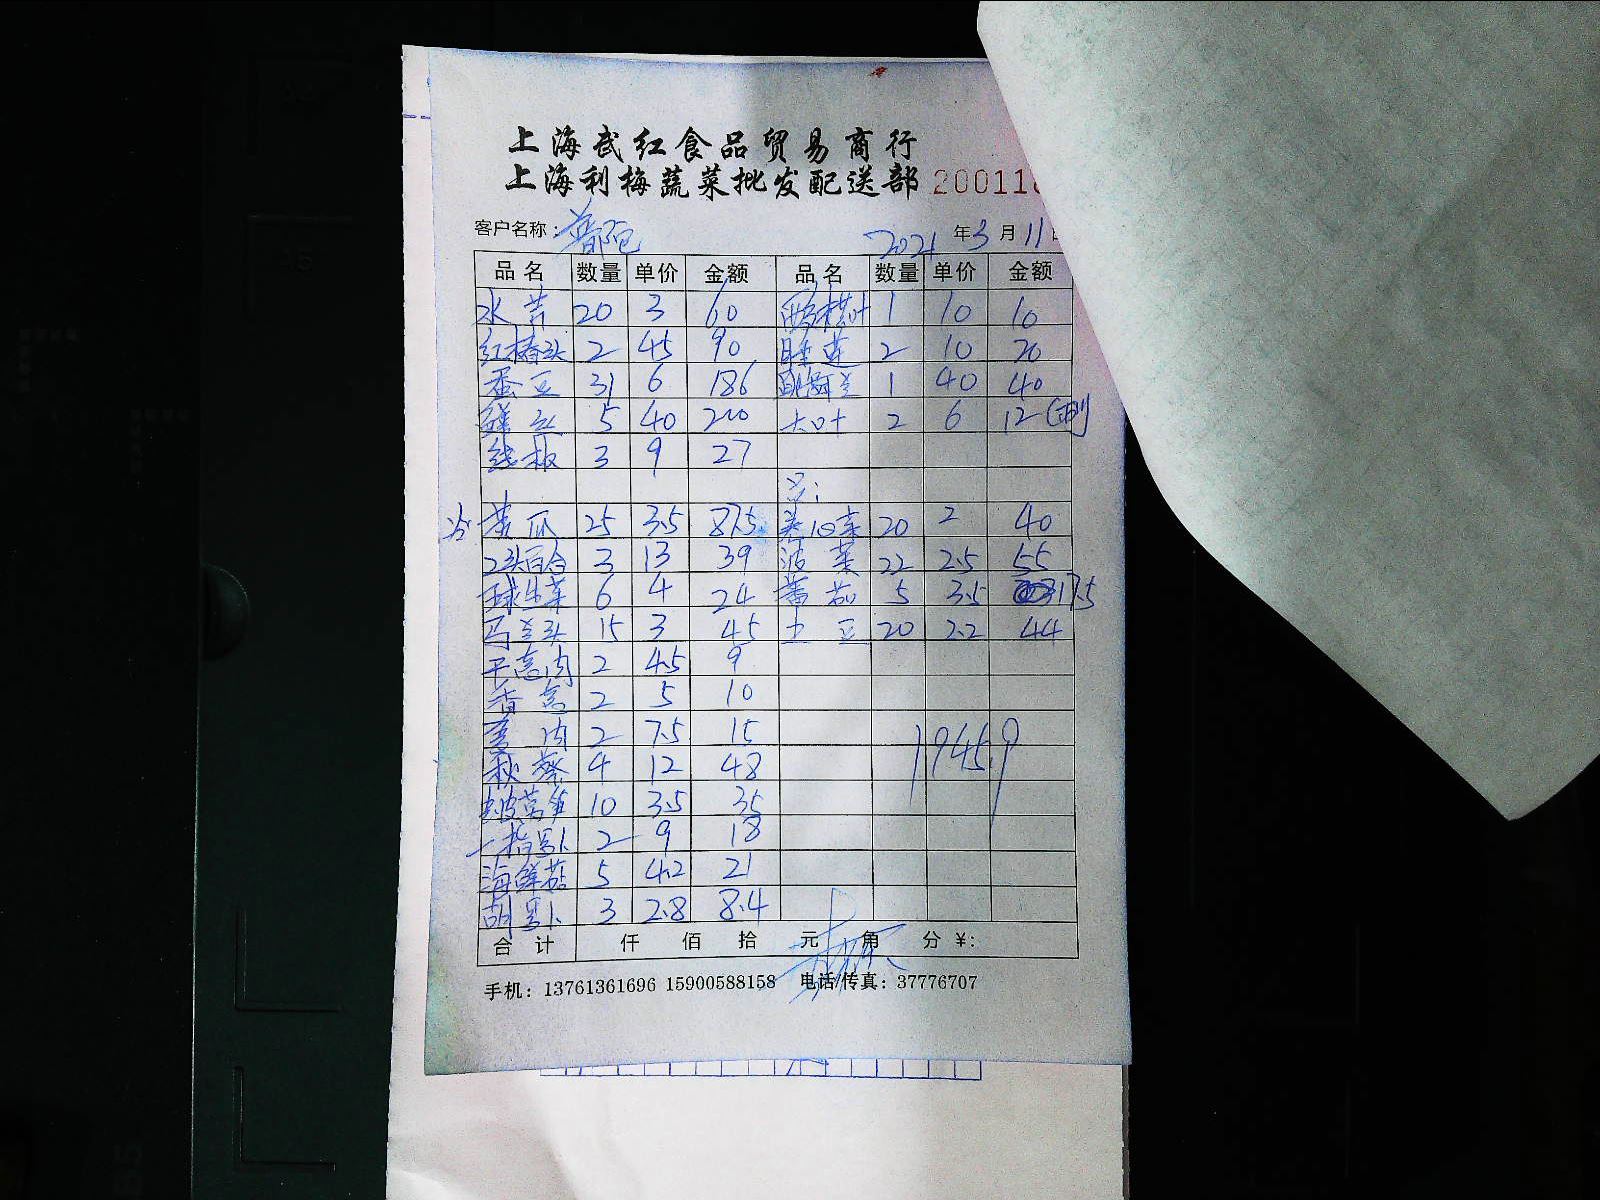 上海武红食品贸易商行
上海利梅蔬菜批发配送部 200118
客户名称: 2021 年 3 月 11
品名 数量 单价 金额 品名 数量 单价 金额
水芹 20 3 60 1 10 10
红椿头 2 45 90 睡莲 2 10 20
蚕豆 31 6 186 跳舞兰 1 40 40
5 40 200 大叶 2 6 12
3 9 27
黄瓜 25 3.5 87.5 20 2 40
2头百合 3 13 39 菠菜 22 2.5 55
球生菜 6 4 24 蕃茄 5 3.5 17.5
马兰头 15 3 45 土豆 20 2.2 44
干葱肉 2 4.5 9
香葱 2 5 10
姜肉 2 7.5 15
秋葵 4 12 48
皮莴笋 10 3.5 35
2 9 18
海鲜菇 5 4.2 21
胡萝卜 3 2.8 8.4
1945.9
合计 仟 佰 拾 元 角 分 ¥:
手机: 13761361696 15900588158 电话/传真: 37776707